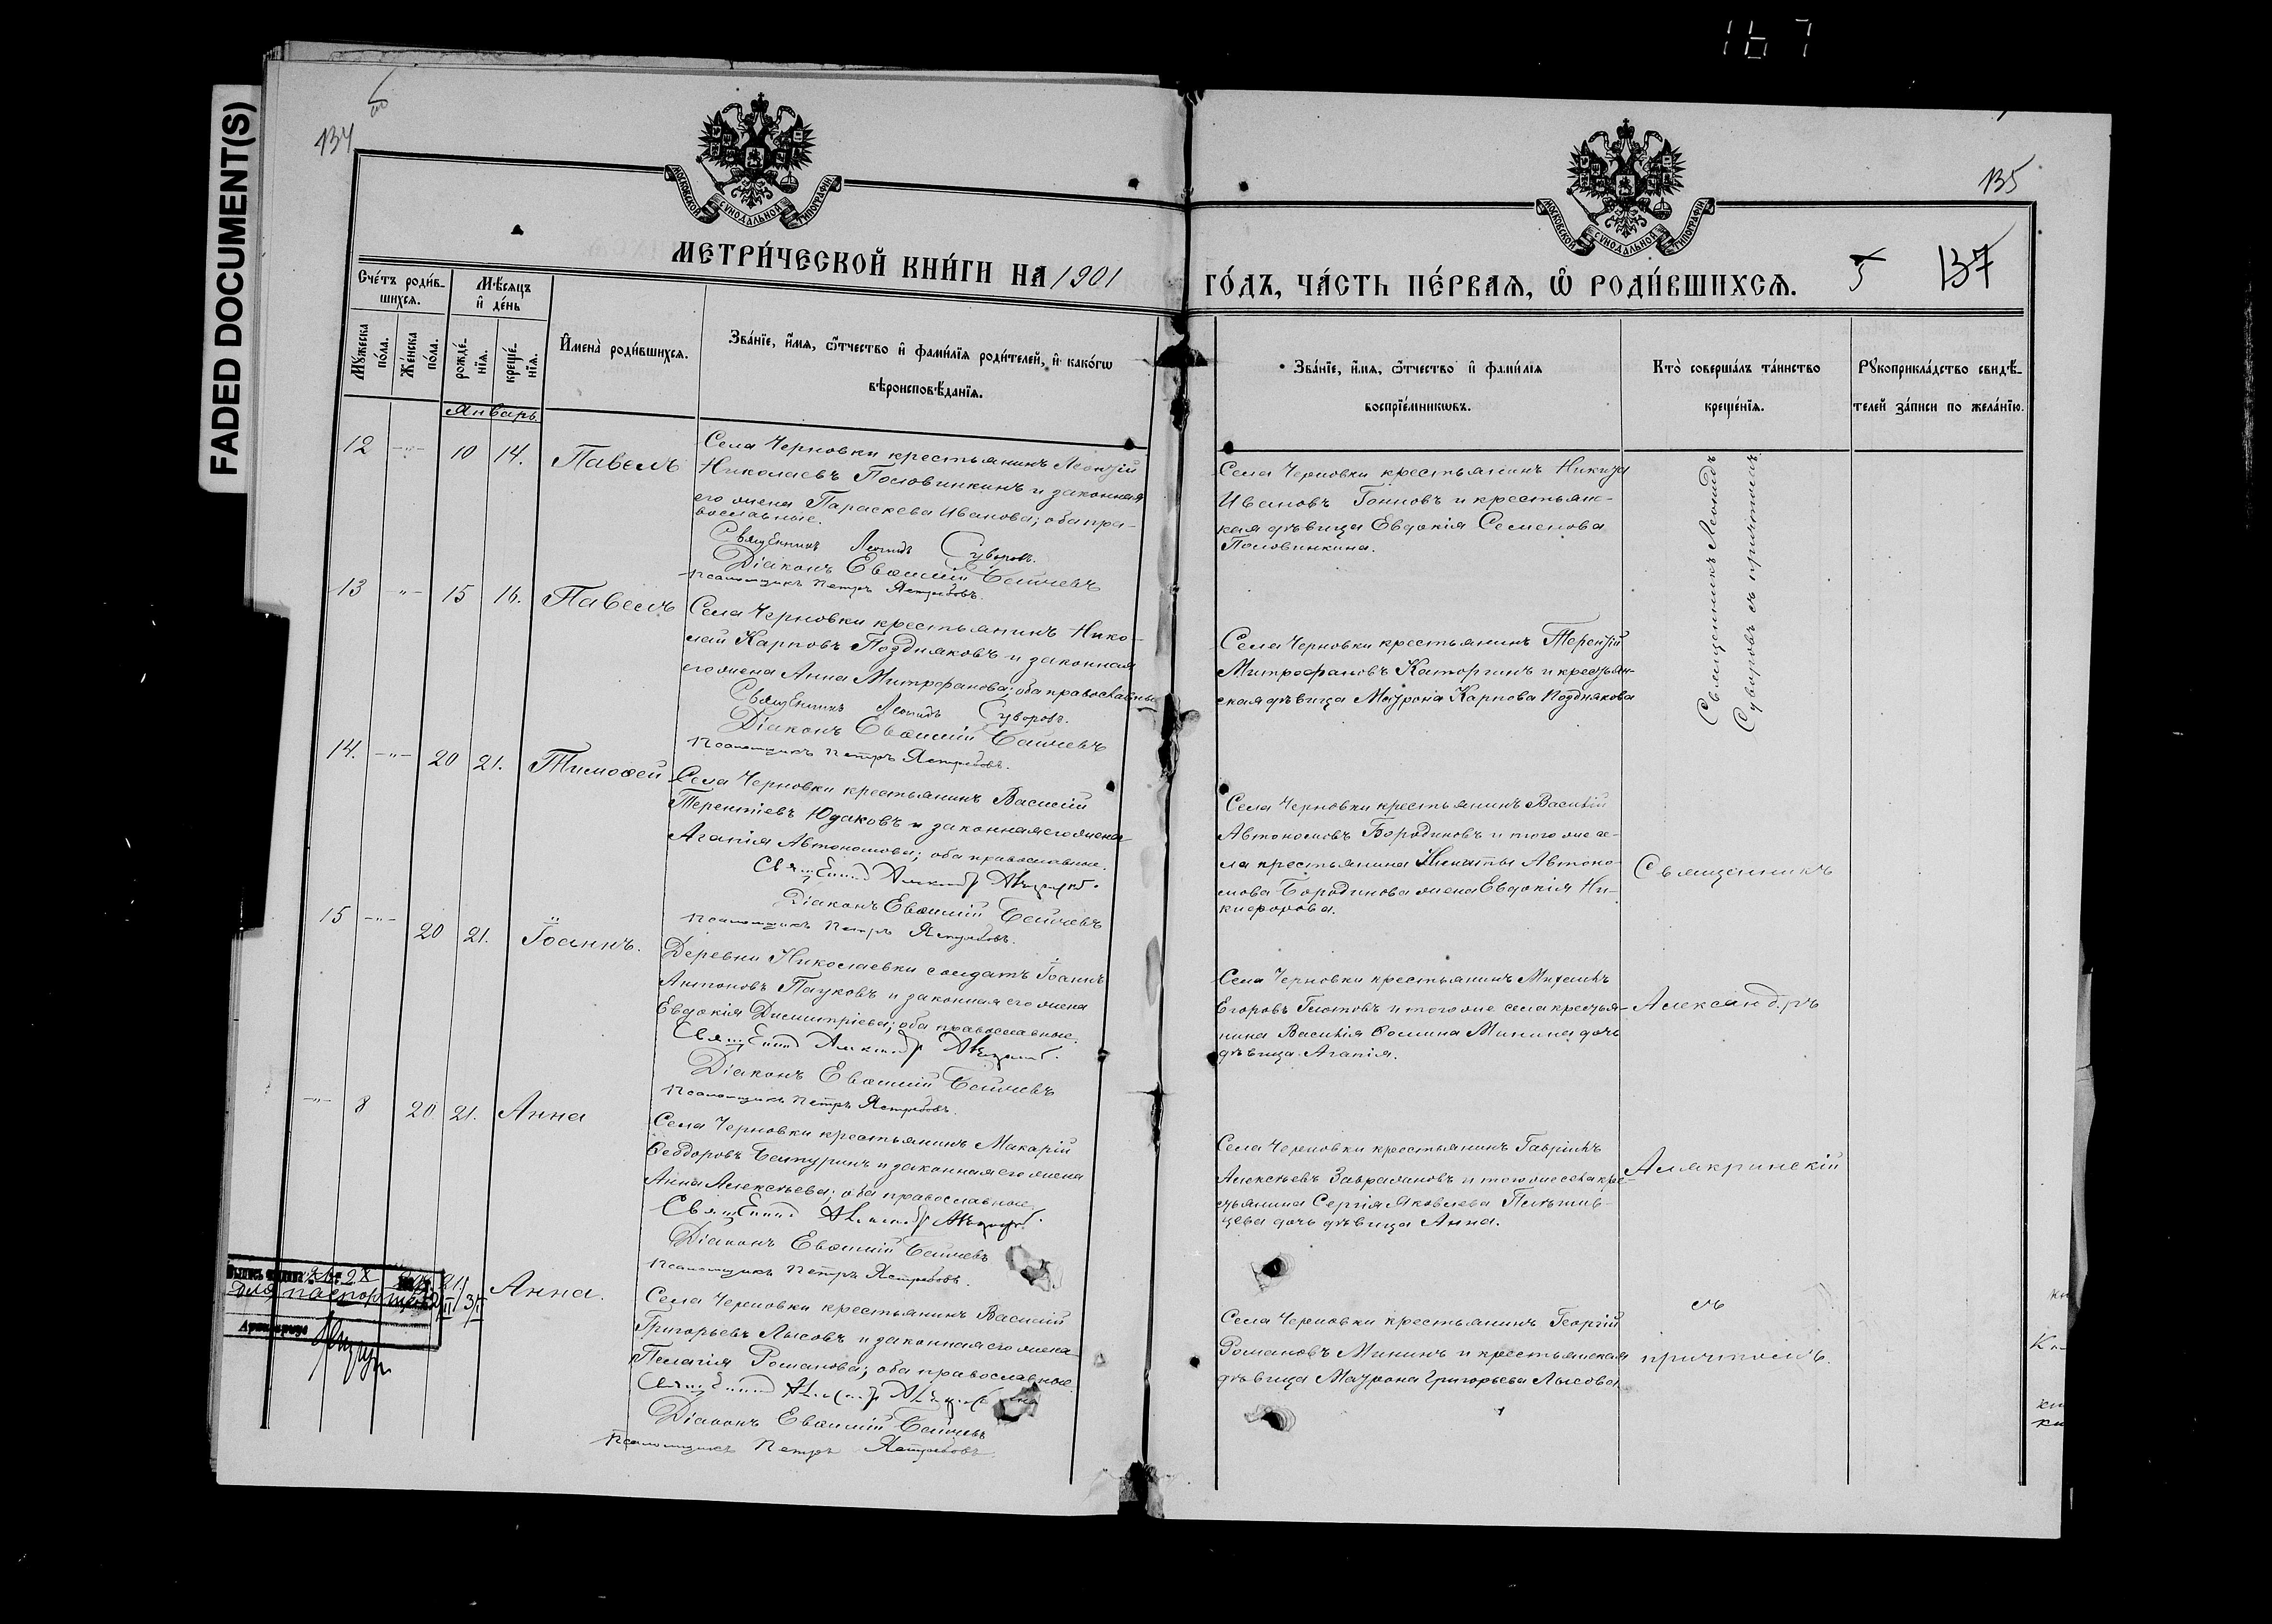 167
FADED DOCUMENT(S)
134
135
МОСКОВСКОЙ СѴНОДАЛЬНОЙ ТИПОГРАФІИ
МОСКОВСКОЙ СѴНОДАЛЬНОЙ ТИПОГРАФІИ
МЕТРИ́ЧЕСКОЙ КНИ́ГИ НА 1901
ГО́ДЪ, ЧА́СТЬ ПЕ́РВАЯ, Ѽ РОДИ́ВШИХСЯ.
5
137
Сче́тъ роди́в-
шихся.
Мѣ́сяцъ
и҆ де́нь
Мꙋ́жеска
по́ла.
Же́нска
по́ла.
рожде́-
нїя.
креще́-
нїя.
И҆мена̀ роди́вшихся.
Зва́нїе, и҆́мя, ѻ҆́тчество и҆ фами́лїя роди́телей, и҆ како́гѡ
вѣроисповѣ́данїя.
Зва́нїе, и҆́мя, ѻ҆́тчество и҆ фами́лїя
воспрїе́мникѡвъ.
Кто̀ соверша́лъ та́инство
креще́нїя.
Рꙋкоприкла́дство свидѣ́-
телей за́писи по жела́нїю.
Январь
12 -"- 10 14. Павелъ
Села Черновки крестьянинъ Леонтій
Николаевъ Половинкинъ и законная
его жена Параскева Иванова; оба пра-
вославные.
Священникъ Леонидъ Суворовъ.
Діаконъ Евѳимій
Псаломщикъ Петръ Ястребовъ.
Села Черновки крестьянинъ Никита
Ивановъ и крестьян-
кая дѣвица Евдокія Семенова
Половинкина.
Священникъ Леонидъ
Суворовъ съ причтомъ.
13 -"- 15 16. Павелъ
Села Черновки крестьянинъ Нико-
лай Карповъ Поздняковъ и законная
его жена Анна Митрофанова; оба православные
Священникъ Леонидъ Суворовъ.
Діаконъ Евѳимій
Псаломщикъ Петръ Ястребовъ.
Села Черновки крестьянинъ Терентій
Митрофановъ Каторгинъ и крестьян-
ская дѣвица Маѵрона Карпова Позднякова
14. -"- 20 21. Тимоѳей
Села Черновки крестьянинъ Василій
Терентіевъ Юдаковъ и законная его жена
Агапія Автономова; оба православные.
Священникъ
Діаконъ Евѳимій
Псаломщикъ Петръ Ястребовъ.
Села Черновки крестьянинъ Василій
Автономовъ Бородиновъ и того же се-
ла крестьянина Автоно-
мова Бородинова жена Евдокія Ни-
кифорова.
Священникъ
15 -"- 20 21. Іоаннъ.
Деревни Николаевки солдатъ Іоаннъ
Антоновъ Пауковъ и законная его жена
Евдокія Димитріева; оба православные.
Священникъ
Діаконъ Евѳимій
Псаломщикъ Петръ Ястребовъ.
Села Черновки крестьянинъ Михаилъ
Егоровъ Глотовъ и того же села крестья-
нина Василія Минина дочь
дѣвица Агапія.
Александръ
-"- 8 20 21. Анна
Села Черновки крестьянинъ Макарій
Ѳеодоровъ Батуринъ и законная его жена
Анна Алексѣева; оба православные.
Священникъ
Діаконъ Евѳимій
Псаломщикъ Петръ Ястребовъ.
Села Черновки крестьянинъ Гавріилъ
Алексѣевъ и того же села кре-
стьянина Сергія Яковлева
дочь дѣвица Анна.
Алякринскій
21. Анна.
Села Черновки крестьянинъ Василій
Григорьевъ Лысовъ и законная его жена
Пелагія Романова; оба православные.
Діаконъ Евѳимій
Псаломщикъ Петръ Ястребовъ.
Села Черновки крестьянинъ Георгій
Романовъ Мининъ и крестьянская
дѣвица Маѵрона Григорьева Лысова
съ
причтомъ.